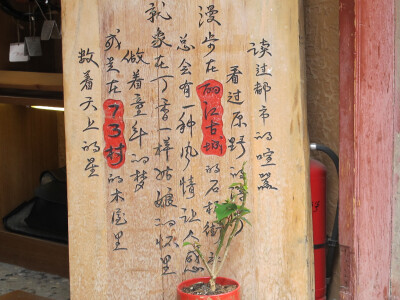 读过都市的喧嚣
看过原野的
漫步在丽江古城的石板街
总会有一种风情让人感
就象在丁香一样姑娘的怀里
做着童年的梦
或是在73村的木屋里
数着天上的星